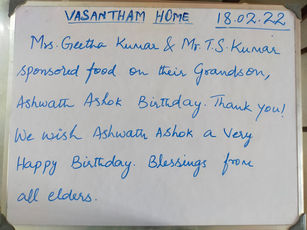 VASANTHAM HOME 18.02.22
Mrs. Geetha Kumar & Mr. T.S. Kumar
sponsored food on their Grandson,
Ashwath Ashok Birthday. Thank you!
We wish Ashwath Ashok a Very
Happy Birthday. Blessings from
all elders.